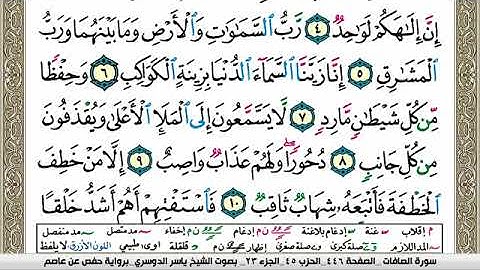 إِنَّ إِلَٰهَكُمْ لَوَٰحِدٌ ٤ رَّبُّ ٱلسَّمَٰوَٰتِ وَٱلْأَرْضِ وَمَا بَيْنَهُمَا وَرَبُّ
ٱلْمَشَٰرِقِ ٥ إِنَّا زَيَّنَّا ٱلسَّمَآءَ ٱلدُّنْيَا بِزِينَةٍ ٱلْكَوَاكِبِ ٦ وَحِفْظًا
مِّن كُلِّ شَيْطَٰنٍ مَّارِدٍ ٧ لَّا يَسَّمَّعُونَ إِلَى ٱلْمَلَإِ ٱلْأَعْلَىٰ وَيُقْذَفُونَ
مِن كُلِّ جَانِبٍ ٨ دُحُورًا ۖ وَلَهُمْ عَذَابٌ وَاصِبٌ ٩ إِلَّا مَنْ خَطِفَ
ٱلْخَطْفَةَ فَأَتْبَعَهُۥ شِهَابٌ ثَاقِبٌ ١٠ فَٱسْتَفْتِهِمْ أَهُمْ أَشَدُّ خَلْقًا
م إقلاب غنة إدغام بلاغنة إدغام ن م إخفاء مد متصل مد منفصل
المد اللازم صلة كبرى صلة صغرى إظهار ن م قلقلة طبيعي اللون الأزرق لا يلفظ
سورة الصافات _ الصفحة ٤٤٦_ الحزب ٤٥_ الجزء ٢٣ _ بصوت الشيخ ياسر الدوسري _برواية حفص عن عاصم